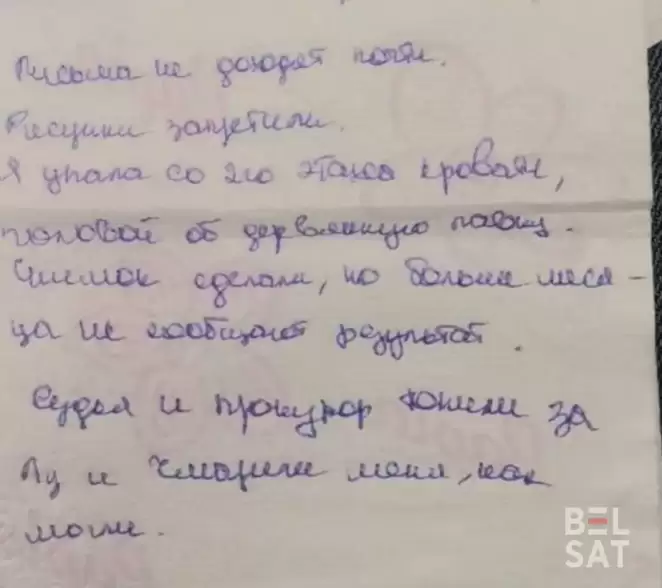 Письма не доходят почти.
Рисунки запретили.
Я упала со 2го этажа кровати,
головой об деревянную лавку.
Снимок сделали, но больше меся-
ца не сообщают результат.
Судья и прокурор топили за
Лу и чмарили меня, как
могли.
BEL
SAT